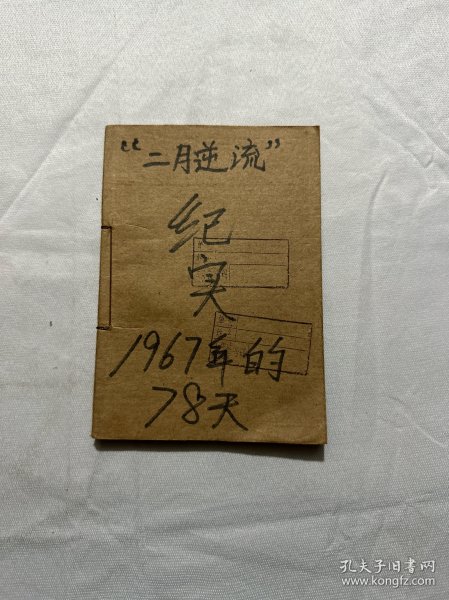 “二月逆流”
纪
实
1967年的
78天
孔夫子旧书网
www.kongfz.com